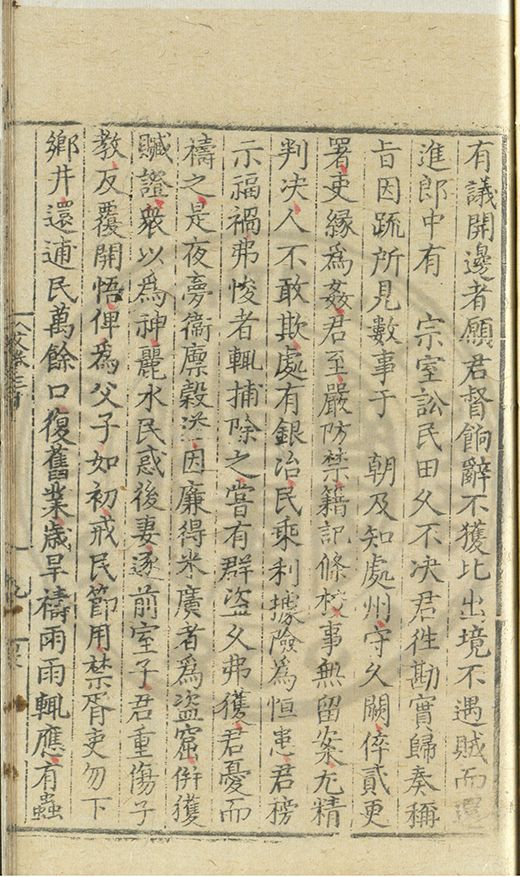 有議開邊者願君督餉辭不獲比出境不遇賊而還
進郎中有　宗室訟民田久不决君徃勘實歸奏稱
旨因䟽所見數事于　朝及知處州守久闕倅貳更
署吏緣爲姦君至嚴防禁籍記條校事無留案尤精
判决人不敢欺處有銀冶民乘利據險爲恒患君榜
示福禍弗悛者輒捕除之嘗有群盗久弗獲君憂而
禱之是夜夢衞廪榖迸因廉得米廣者爲盗窟併獲
贓證衆以爲神麗水民惑後妻逐前室子君重傷子
教反覆開悟俾爲父子如初戒民節用禁胥吏勿下
鄉井還逋民萬餘口復舊業歲旱禱雨雨輒應有蟲